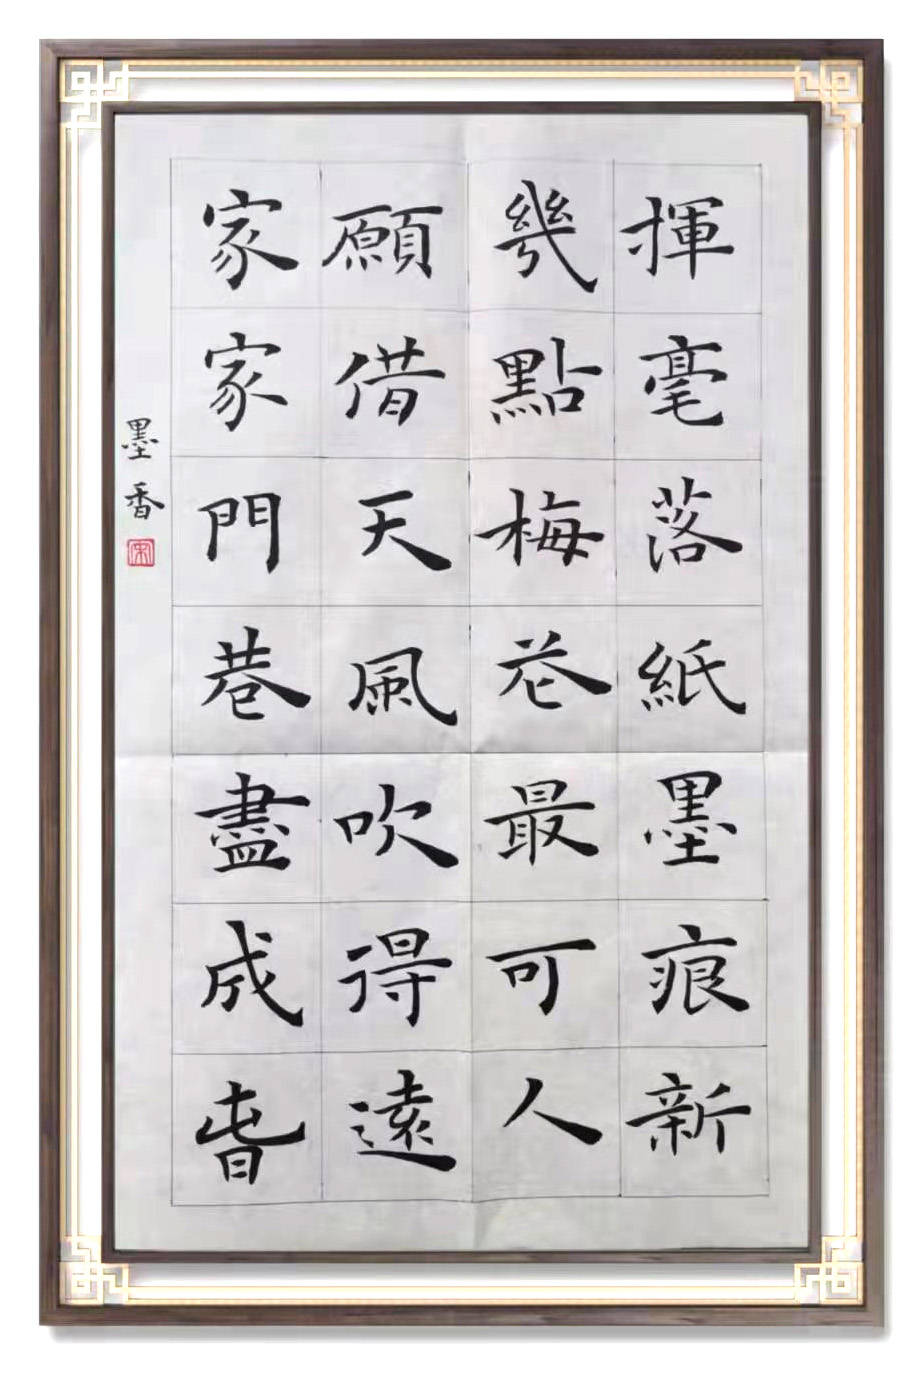 揮毫落紙墨痕新
幾點梅花最可人
願借天風吹得遠
家家門巷盡成春
墨香